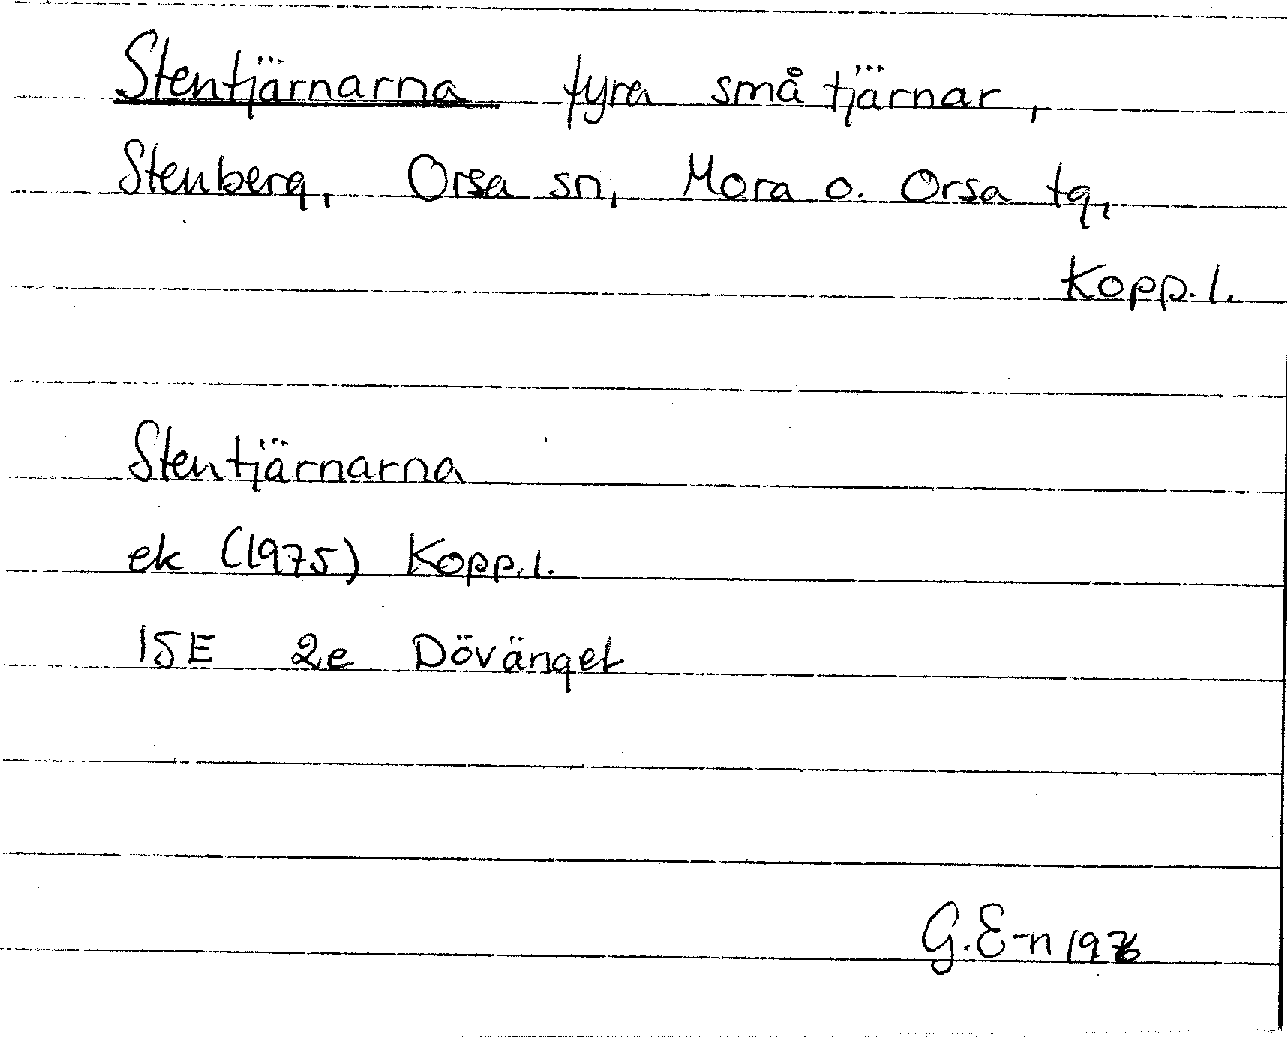 Stentjärnarna fyra små tjärnar,
Stenberg, Orsa sn, Mora o. Orsa tg,
Kopp. l.
Stentjärnarna
ek (1975) Kopp. l.
15E 2e Dövänget
G. E-n 1976